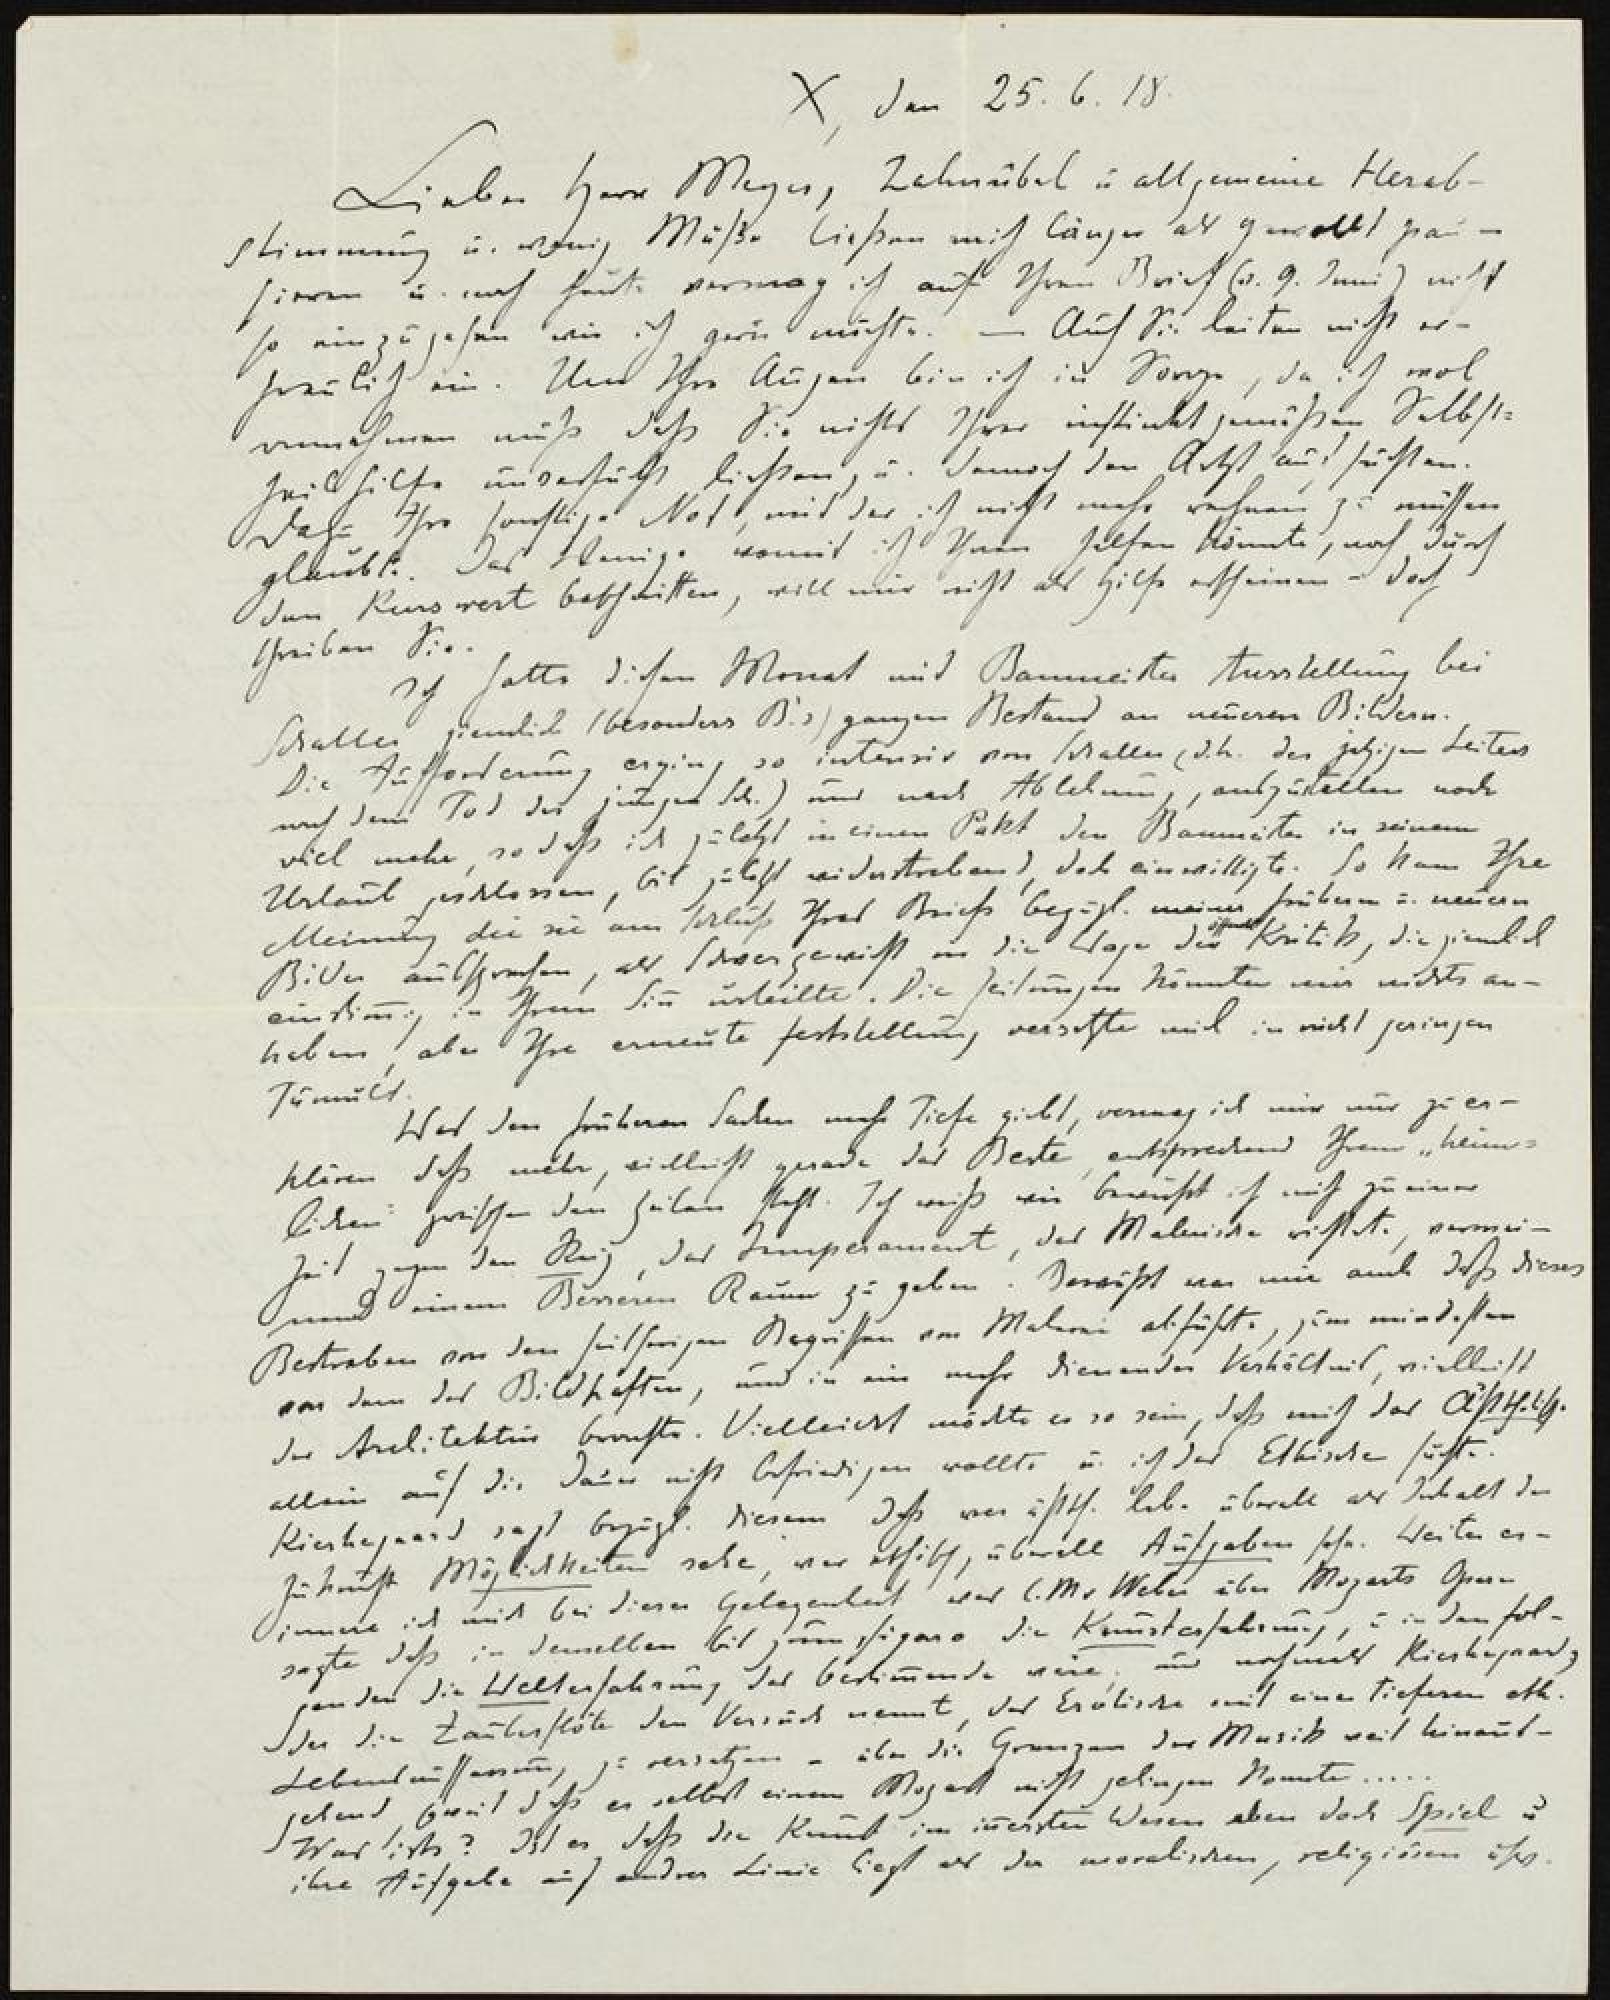 X, den 25. 6. 18.
Lieber Herr Meyer, Zahnübel u allgemeine Herab-
stimmung u. wenig Muße ließen mich länger als gewollt pau-
sieren u. noch heute vermag ich auf Ihren Brief (v. 9. Juni) nicht
so einzugehen wie ich gern möchte. — Auch Sie leiten nicht er-
freulich ein. Um Ihre Augen bin ich in Sorge, da ich wol
annehmen muß daß Sie nichts Ihrer instinktgemäßen Selbst-
heilhilfe unversucht ließen, u. dennoch den Arzt aufsuchten.
Dazu Ihre sonstige Not, mit der ich nicht mehr rechnen zu müssen
glaubte. Das Wenige womit ich Ihnen helfen könnte, noch durch
den Kurswert beschnitten, will mir nicht als Hilfe erscheinen – doch
schreiben Sie.
Ich hatte diesen Monat mit Baumeister Ausstellung bei
Schaller ziemlich (besonders B.s) ganzen Bestand an neueren Bildern.
Die Aufforderung erging so intensiv von Schaller (d.h. des jetzigen Leiters
nach dem Tod des jungen Sch.) und nach Ablehnung, auszustellen noch
viel mehr, so daß ich zuletzt in einen Pakt den Baumeister in seinem
Urlaub geschlossen, bis zuletzt widerstrebend, doch einwilligte. So kam Ihre
Meinung die sie am Schluß Ihres Briefs bezügl. meiner früheren u. neuern
Bilder aussprachen, als Schwergewicht in die Wage der Kritik, die ziemlich
einstimig in Ihrem Sin urteilte. Die Zeitungen könnten mir nichts an-
haben, aber Ihre erneute Feststellung versetzte mich in nicht geringen
Tumult.
Was den früheren Sachen mehr Tiefe giebt, vermag ich mir nur zu er-
klären daß mehr, vielleicht gerade das Beste, entsprechend Ihrem „heim-
lichen" zwischen den Zeilen steht. Ich weiß wie bewußt ich mich zu einer
Zeit gegen den Reiz, das Temperament, das Malerische richtete, vermei-
nend einem Besseren Raum zu geben. Bewußt war mir auch daß dieses
Bestreben von den seitherigen Begriffen von Malerei abführte, zum mindesten
von dem des Bildhaften, und in ein mehr dienendes Verhältnis, vielleicht
der Architektur brachte. Vielleicht möchte es so sein, daß mich das Ästhetische
allein auf die Dauer nicht befriedigen wollte u. ich das Ethische suchte.
Kierkegaard sagt bezügl. diesem daß wer ästh. lebe überall als Inhalt der
Zukunft Möglichkeiten sehe, wer ethisch, überall Aufgaben sehe. Weiter er-
innere ich mich bei dieser Gelegenheit was C.M.v Weber über Mozarts Opern
sagte daß in denselben bis zum Figaro die Kunsterfahrung, u in den fol-
genden die Welterfahrung das bestimende wäre; und nochmals Kierkegaard,
der die Zauberflöte den Versuch nennt, das Erotische mit einer tieferen eth.
Lebensauffassung zu versetzen – über die Grenzen der Musik weit hinaus-
gehend sodaß es selbst einem Mozart nicht gelingen konnte.....
Was ists? Ist es daß die Kunst im iñersten Wesen eben doch Spiel u
ihre Aufgabe auf andrer Linie liegt als der moralischen, religiösen usw.